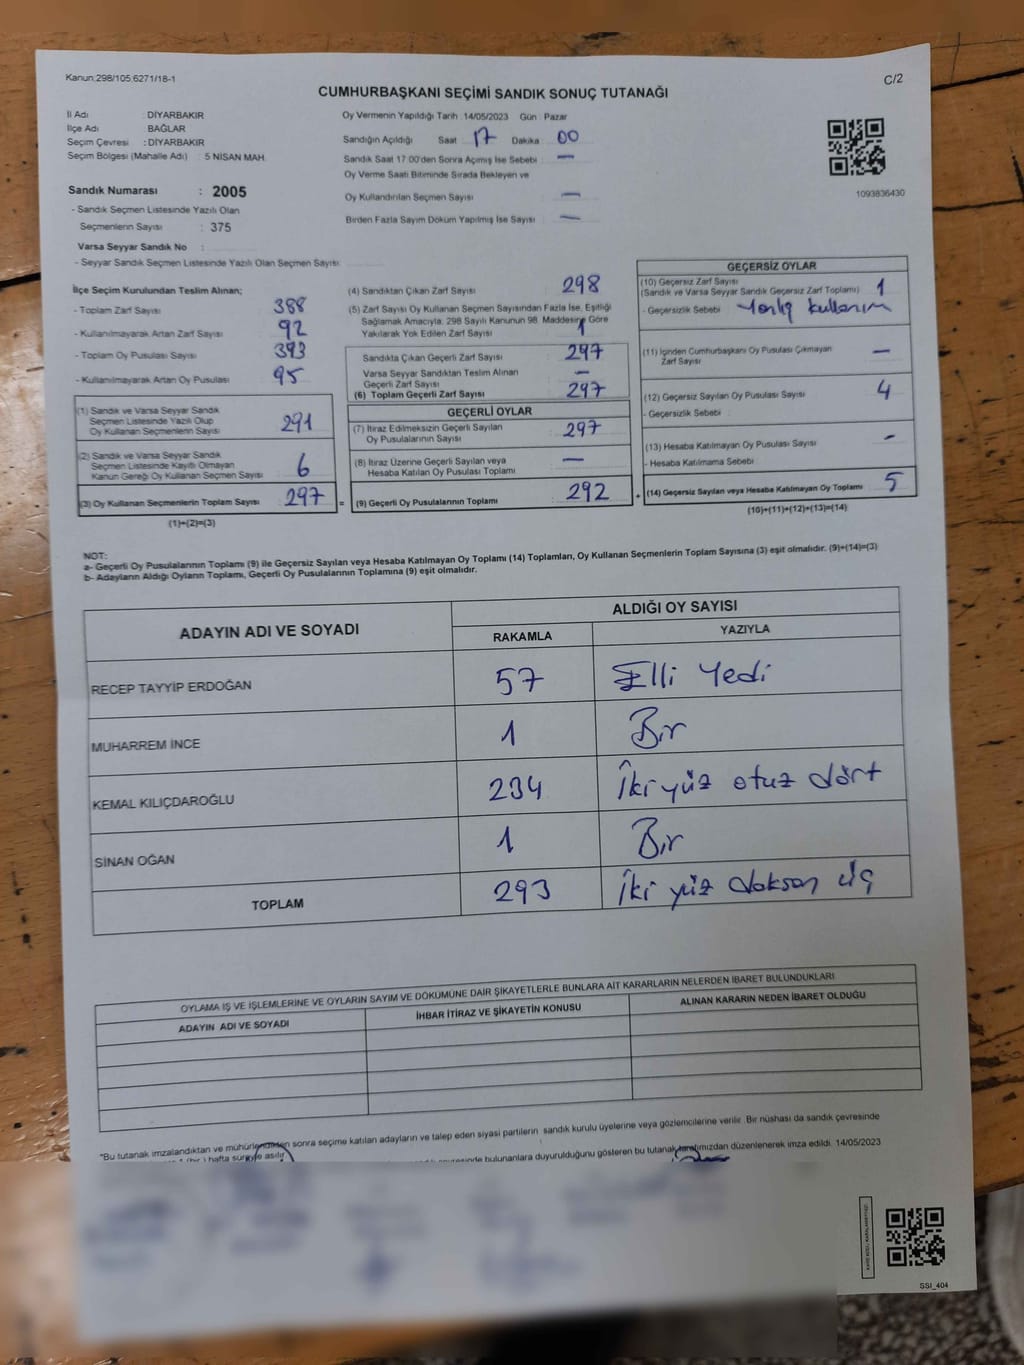 Kanun:298/105;6271/18-1
C/2
CUMHURBAŞKANI SEÇİMİ SANDIK SONUÇ TUTANAĞI
İl Adı : DİYARBAKIR
İlçe Adı : BAĞLAR
Seçim Çevresi : DİYARBAKIR
Seçim Bölgesi (Mahalle Adı) : 5 NİSAN MAH.
Sandık Numarası : 2005
- Sandık Seçmen Listesinde Yazılı Olan
Seçmenlerin Sayısı : 375
Varsa Seyyar Sandık No :
- Seyyar Sandık Seçmen Listesinde Yazılı Olan Seçmen Sayısı:
Oy Vermenin Yapıldığı Tarih :14/05/2023 Gün : Pazar
Sandığın Açıldığı Saat 17 Dakika 00
Sandık Saat 17.00'den Sonra Açımış İse Sebebi : —
Oy Verme Saati Bitiminde Sırada Bekleyen ve
Oy Kullandırılan Seçmen Sayısı : —
Birden Fazla Sayım Döküm Yapılmış İse Sayısı : —
1093836430
İlçe Seçim Kurulundan Teslim Alınan;
- Toplam Zarf Sayısı : 388
- Kullanılmayarak Artan Zarf Sayısı : 92
- Toplam Oy Pusulası Sayısı : 393
- Kullanılmayarak Artan Oy Pusulası : 95
(1) Sandık ve Varsa Seyyar Sandık
Seçmen Listesinde Yazılı Olup
Oy Kullanan Seçmenlerin Sayısı : 291
(2) Sandık ve Varsa Seyyar Sandık
Seçmen Listesinde Kayıtlı Olmayan
Kanun Gereği Oy Kullanan Seçmen Sayısı : 6
(3) Oy Kullanan Seçmenlerin Toplam Sayısı : 297 =
(1)+(2)=(3)
(4) Sandıktan Çıkan Zarf Sayısı : 298
(5) Zarf Sayısı Oy Kullanan Seçmen Sayısından Fazla İse, Eşitliği
Sağlamak Amacıyla; 298 Sayılı Kanunun 98. Maddesine Göre
Yakılarak Yok Edilen Zarf Sayısı : 1
Sandıkta Çıkan Geçerli Zarf Sayısı : 297
Varsa Seyyar Sandıktan Teslim Alınan
Geçerli Zarf Sayısı : —
(6) Toplam Geçerli Zarf Sayısı : 297
GEÇERLİ OYLAR
(7) İtiraz Edilmeksizin Geçerli Sayılan
Oy Pusulalarının Sayısı : 297
(8) İtiraz Üzerine Geçerli Sayılan veya
Hesaba Katılan Oy Pusulası Toplamı : —
(9) Geçerli Oy Pusulalarının Toplamı : 292 +
GEÇERSİZ OYLAR
(10) Geçersiz Zarf Sayısı
(Sandık ve Varsa Seyyar Sandık Geçersiz Zarf Toplamı) : 1
- Geçersizlik Sebebi : Yanlış kullanım
(11) İçinden Cumhurbaşkanı Oy Pusulası Çıkmayan
Zarf Sayısı : —
(12) Geçersiz Sayılan Oy Pusulası Sayısı : 4
- Geçersizlik Sebebi :
(13) Hesaba Katılmayan Oy Pusulası Sayısı : -
- Hesaba Katılmama Sebebi :
(14) Geçersiz Sayılan veya Hesaba Katılmayan Oy Toplamı : 5
(10)+(11)+(12)+(13)=(14)
NOT:
a- Geçerli Oy Pusulalarının Toplamı (9) ile Geçersiz Sayılan veya Hesaba Katılmayan Oy Toplamı (14) Toplamları, Oy Kullanan Seçmenlerin Toplam Sayısına (3) eşit olmalıdır. (9)+(14)=(3)
b- Adayların Aldığı Oyların Toplamı, Geçerli Oy Pusulalarının Toplamına (9) eşit olmalıdır.
ADAYIN ADI VE SOYADI
ALDIĞI OY SAYISI
RAKAMLA YAZIYLA
RECEP TAYYİP ERDOĞAN 57 Elli Yedi
MUHARREM İNCE 1 Bir
KEMAL KILIÇDAROĞLU 234 İki yüz otuz dört
SİNAN OĞAN 1 Bir
TOPLAM 293 İki yüz doksan üç
OYLAMA İŞ VE İŞLEMLERİNE VE OYLARIN SAYIM VE DÖKÜMÜNE DAİR ŞİKAYETLERLE BUNLARA AİT KARARLARIN NELERDEN İBARET BULUNDUKLARI
ADAYIN ADI VE SOYADI İHBAR İTİRAZ VE ŞİKAYETİN KONUSU ALINAN KARARIN NEDEN İBARET OLDUĞU
"Bu tutanak imzalandıktan ve mühürlendikten sonra seçime katılan adayların ve talep eden siyasi partilerin sandık kurulu üyelerine veya gözlemcilerine verilir. Bir nüshası da sandık çevresinde
hafta süreyle asılır. bulunanlara duyurulduğunu gösteren bu tutanak tarafımızdan düzenlenerek imza edildi. 14/05/2023
SSI_404